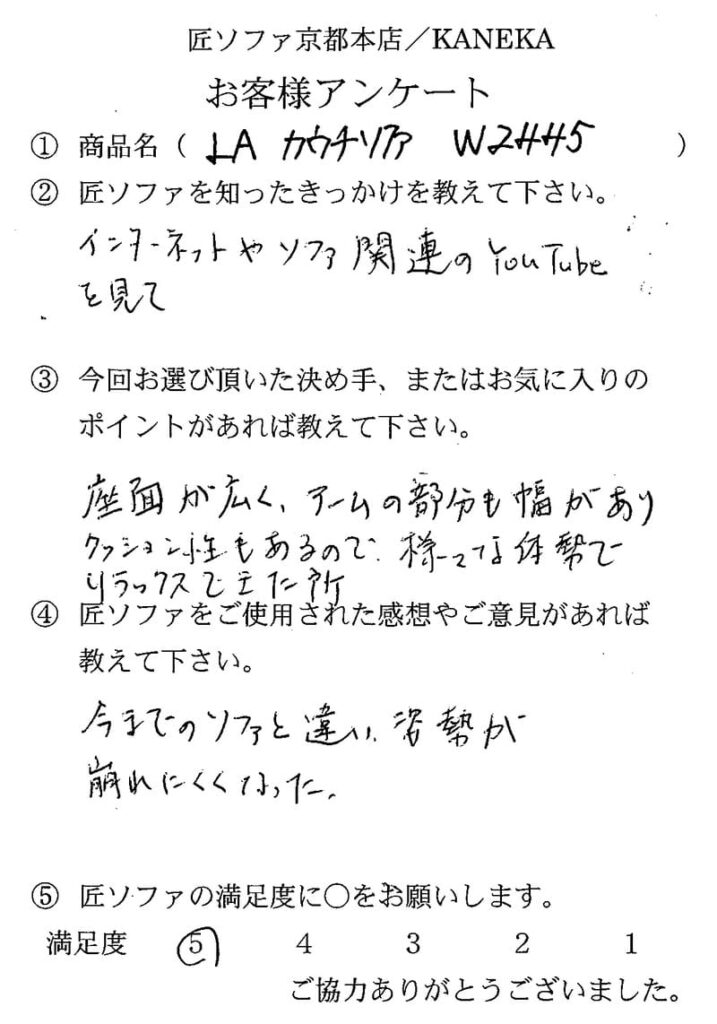 匠ソファ京都本店／KANEKA
お客様アンケート
① 商品名（ LA カウチソファ W2445 ）
② 匠ソファを知ったきっかけを教えて下さい。
インターネットやソファ関連のYouTube
を見て
③ 今回お選び頂いた決め手、またはお気に入りの
ポイントがあれば教えて下さい。
座面が広く、アームの部分も幅があり
クッション性もあるので、様々な体勢で
リラックスできた所
④ 匠ソファをご使用された感想やご意見があれば
教えて下さい。
今までのソファと違い、姿勢が
崩れにくくなった。
⑤ 匠ソファの満足度に○をお願いします。
満足度 5 4 3 2 1
ご協力ありがとうございました。